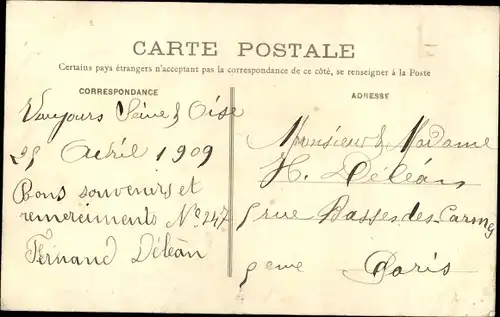 CARTE POSTALE
Certains pays étrangers n'acceptant pas la correspondance de ce côté, se renseigner à la Poste
CORRESPONDANCE
ADRESSE
Vaujours Seine & Oise
25 Avril 1909
Bons souvenirs et
remerciments No 247
Fernand Déléan
Monsieur & Madame
H. Déléan
5 rue Basse des Carmes
5eme Paris